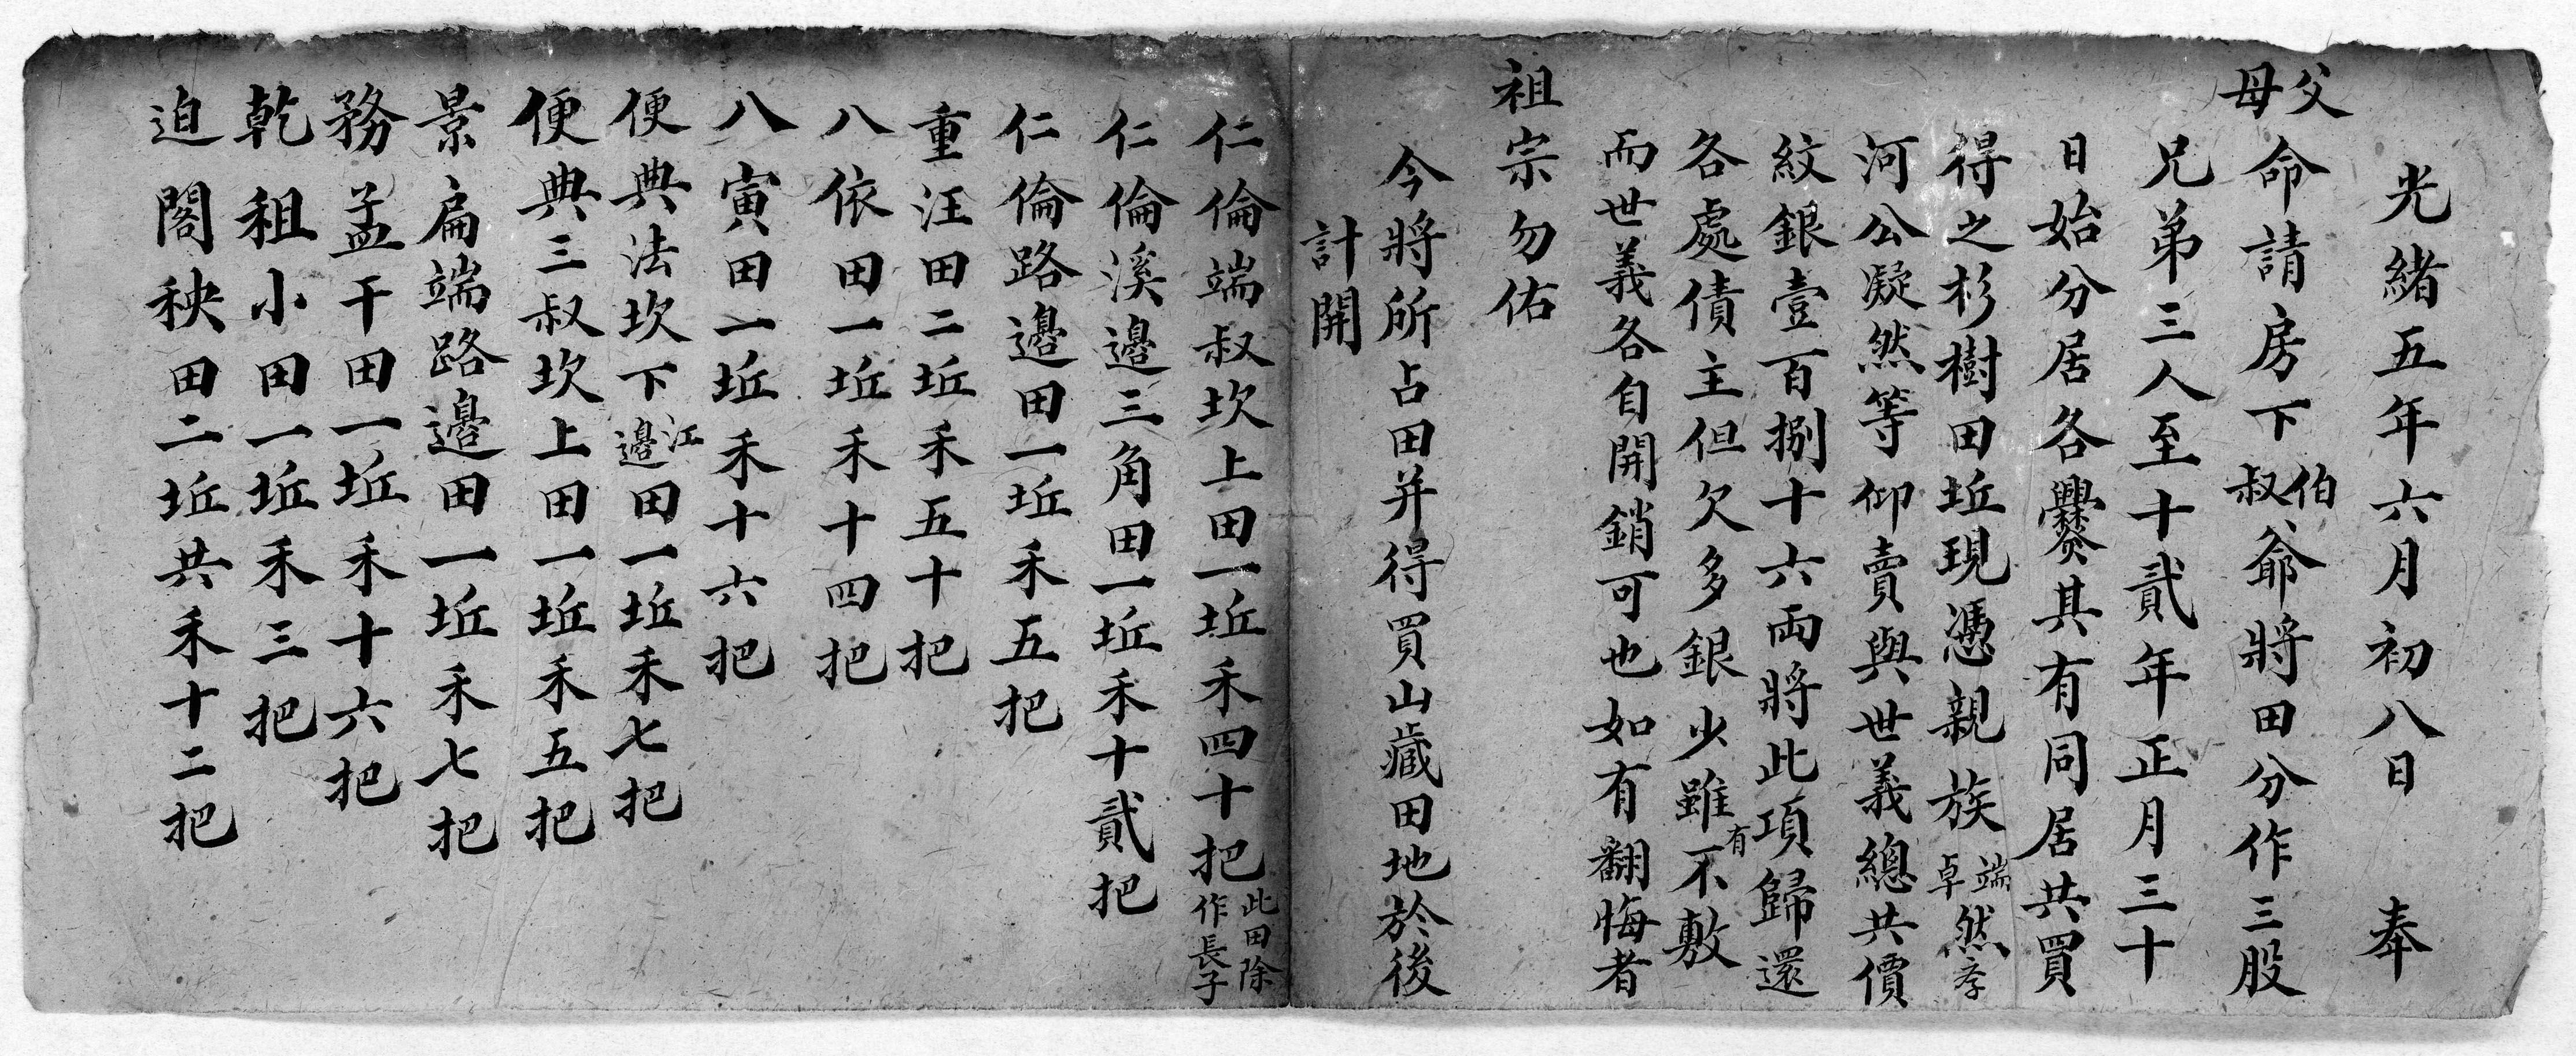 光緒五年六月初八日 奉
父母命請房下伯叔爺將田分作三股
兄弟三人至十貳年正月三十
日始分居各爨其有同居共買
得之杉樹田坵現憑親族端卓然孝
河公凝然等仰賣與世義總共價
紋銀壹百捌十六両將此項歸還
各處債主但欠多銀少雖有不敷
而世義各自開銷可也如有翻悔者
祖宗勿佑
今將所占田并得買山藏田地於後
計開
仁倫端叔坎上田一坵禾四十把此田除作長子
仁倫溪邊三角田一坵禾十貳把
仁倫路邊田一坵禾五把
重汪田二坵禾五十把
八依田一坵禾十四把
八寅田一坵禾十六把
便典法坎下江邊田一坵禾七把
便典三叔坎上田一坵禾五把
景扁端路邊田一坵禾七把
務孟干田一坵禾十六把
乾租小田一坵禾三把
迫閣秧田二坵共禾十二把